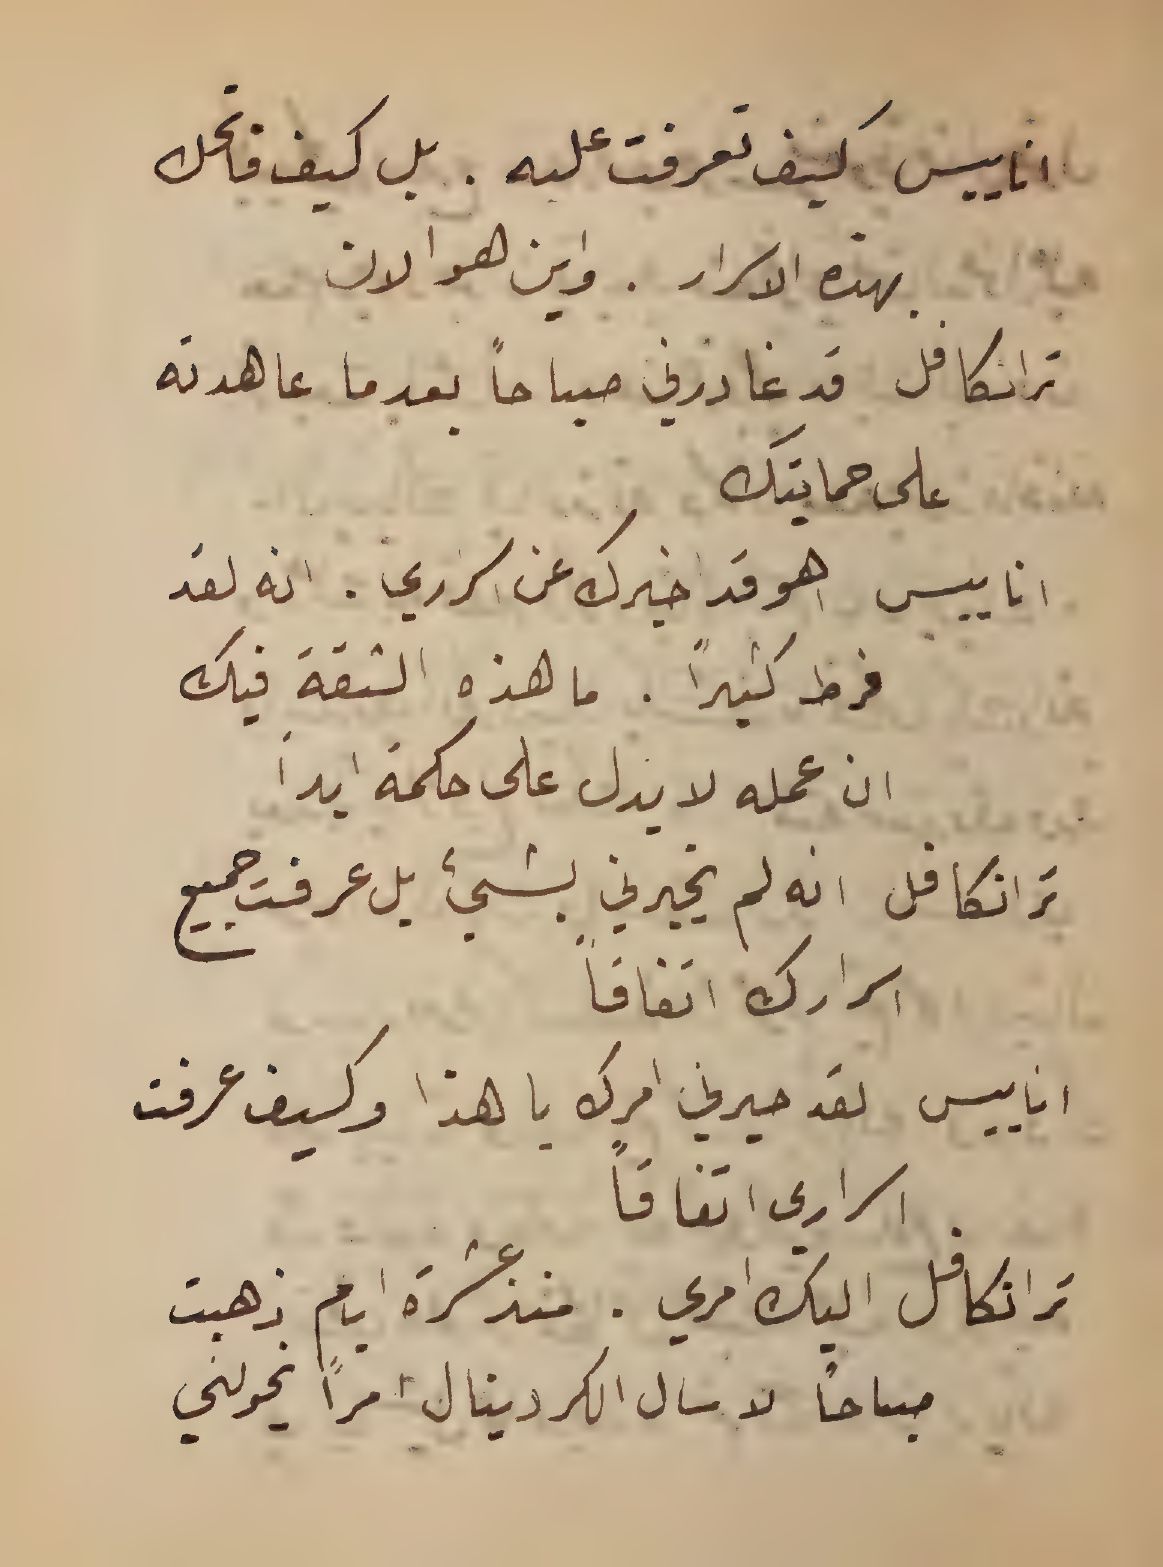 اناييس كيف تعرفت عليه . بل كيف فاتحك
بهذه الاسرار . واين هو الان
ترانكافل قد غادرني صباحاً بعد ما عاهدته
على حمايتك
اناييس اهو قد اخبرك عن اسراري . انه لقد
فرط كثيراً . ما هذه الثقة فيك
ان عمله لا يدل على حكمة ابداً
ترانكافل انه لم يخبرني بشيئ بل عرفت جميع
اسرارك اتفاقاً
اناييس لقد حيرني امرك يا هذا وكيف عرفت
اسراري اتفاقاً
ترانكافل اليك امري . منذ عشرة ايام ذهبت
صباحاً لاسال الكردينال امراً يخولني